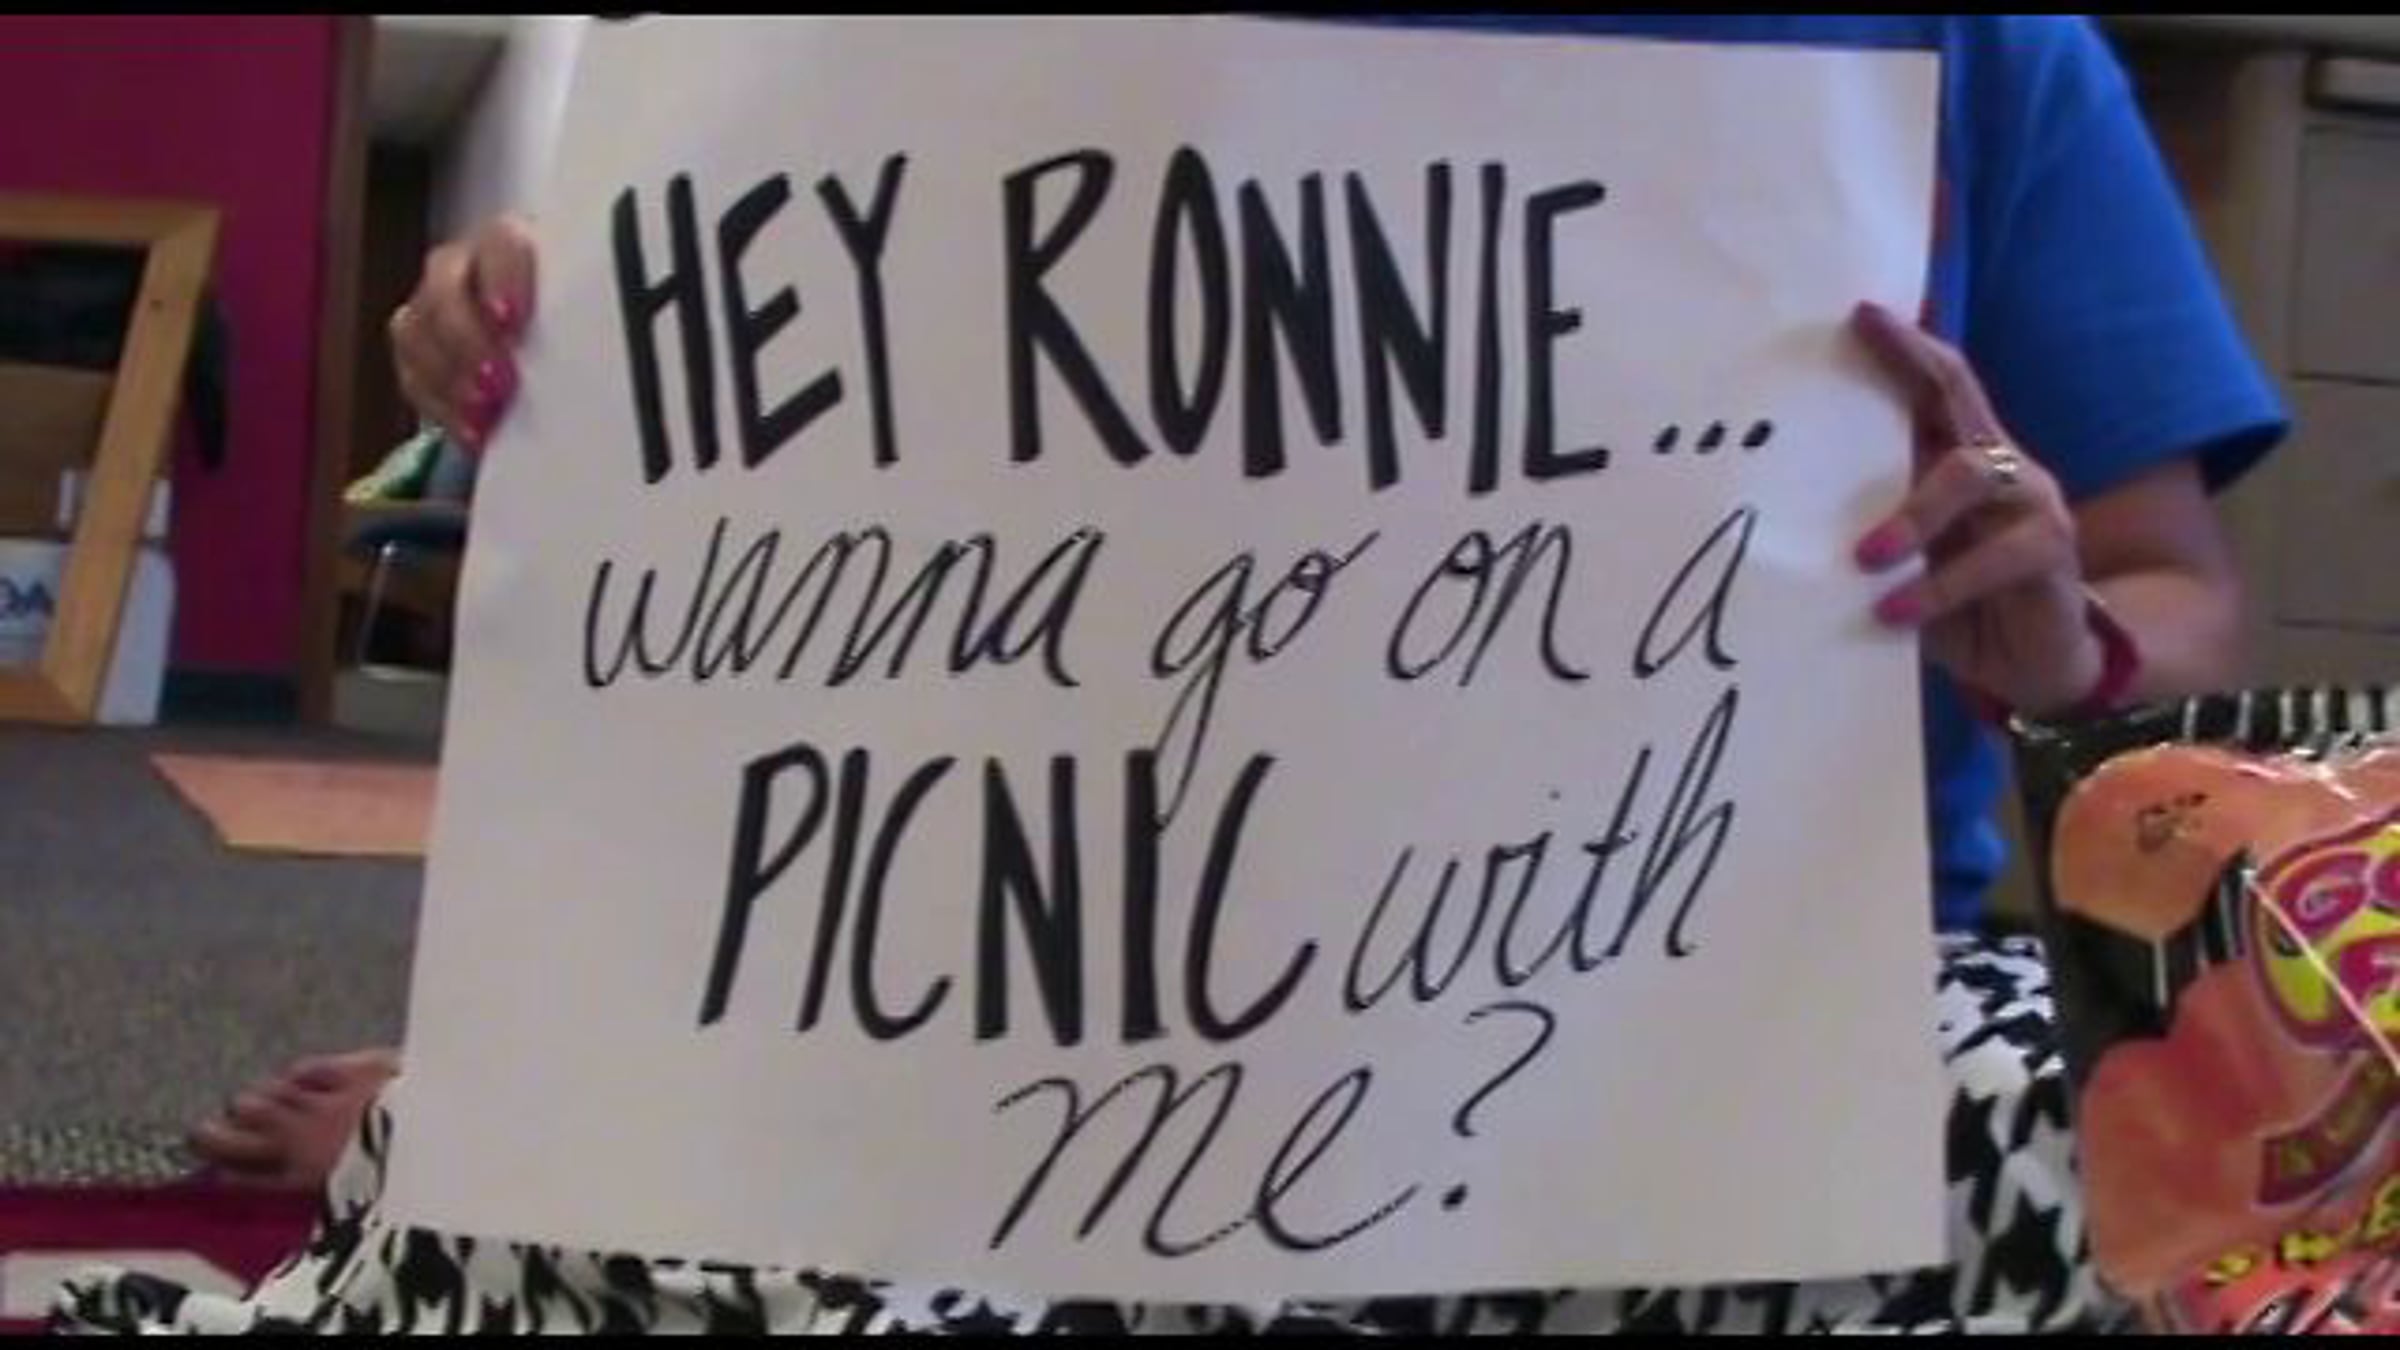 HEY RONNIE...
wanna go on a
PICNIC with
me?